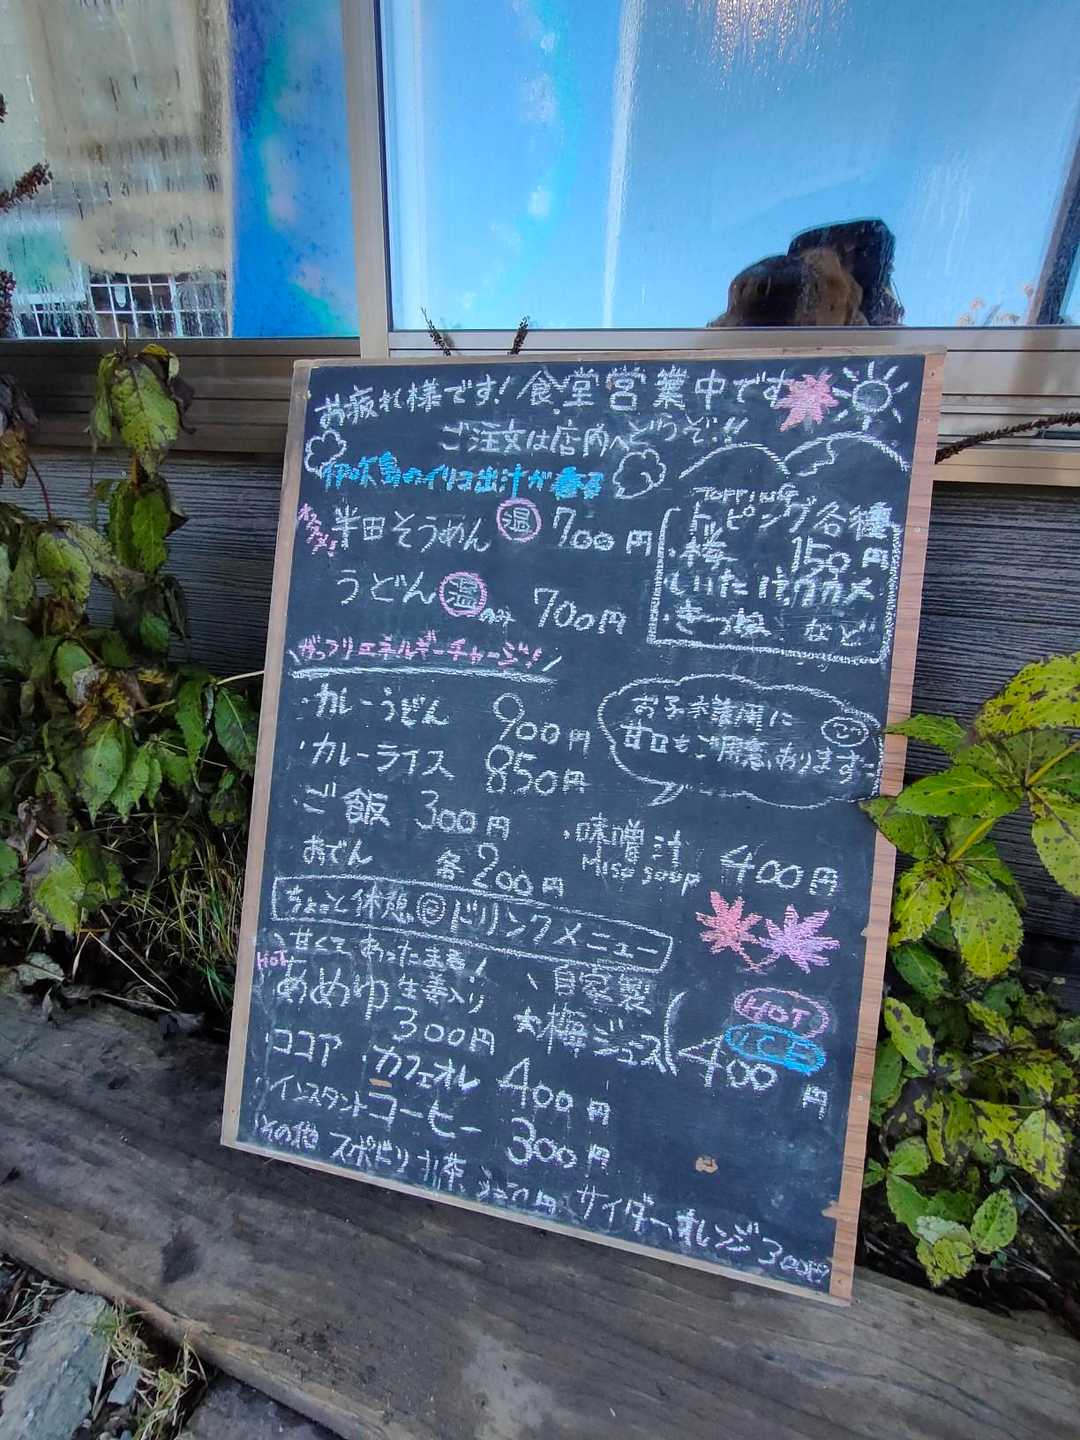 お疲れ様です! 食堂営業中です
ご注文は店内へどうぞ!!
伊吹島のイリコ出汁が香る
オススメ! 半田そうめん 温 700円
うどん 温のみ 700円
TOPPING
トッピング各種
・桜 150円
しいたけ・ワカメ
・きつね など
\ガッツリエネルギーチャージ!/
・カレーうどん 900円
・カレーライス 850円
お子様用に
甘口もご用意あります
ご飯 300円
・味噌汁 400円
Miso soup
おでん 各200円
ちょっと休憩 ドリンクメニュー
甘くてあったまる!
HOT あめゆ 生姜入り
300円
自家製
★梅ジュース HOT ICE 400円
・ココア ・カフェオレ 400円
・インスタントコーヒー 300円
・その他 スポドリ お茶 サイダー オレンジ 300円